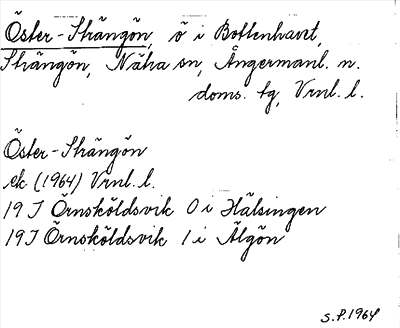 Öster-Skängön, ö i Bottenhavet,
Skängön, Nätra sn, Ångermanl. n.
doms. tg, Vrnl. l.
Öster-Skängön
ek (1964) Vrnl. l.
19 J Örnsköldsvik 0 i Hälsingen
19 J Örnsköldsvik 1 i Älgön
S.P. 1964